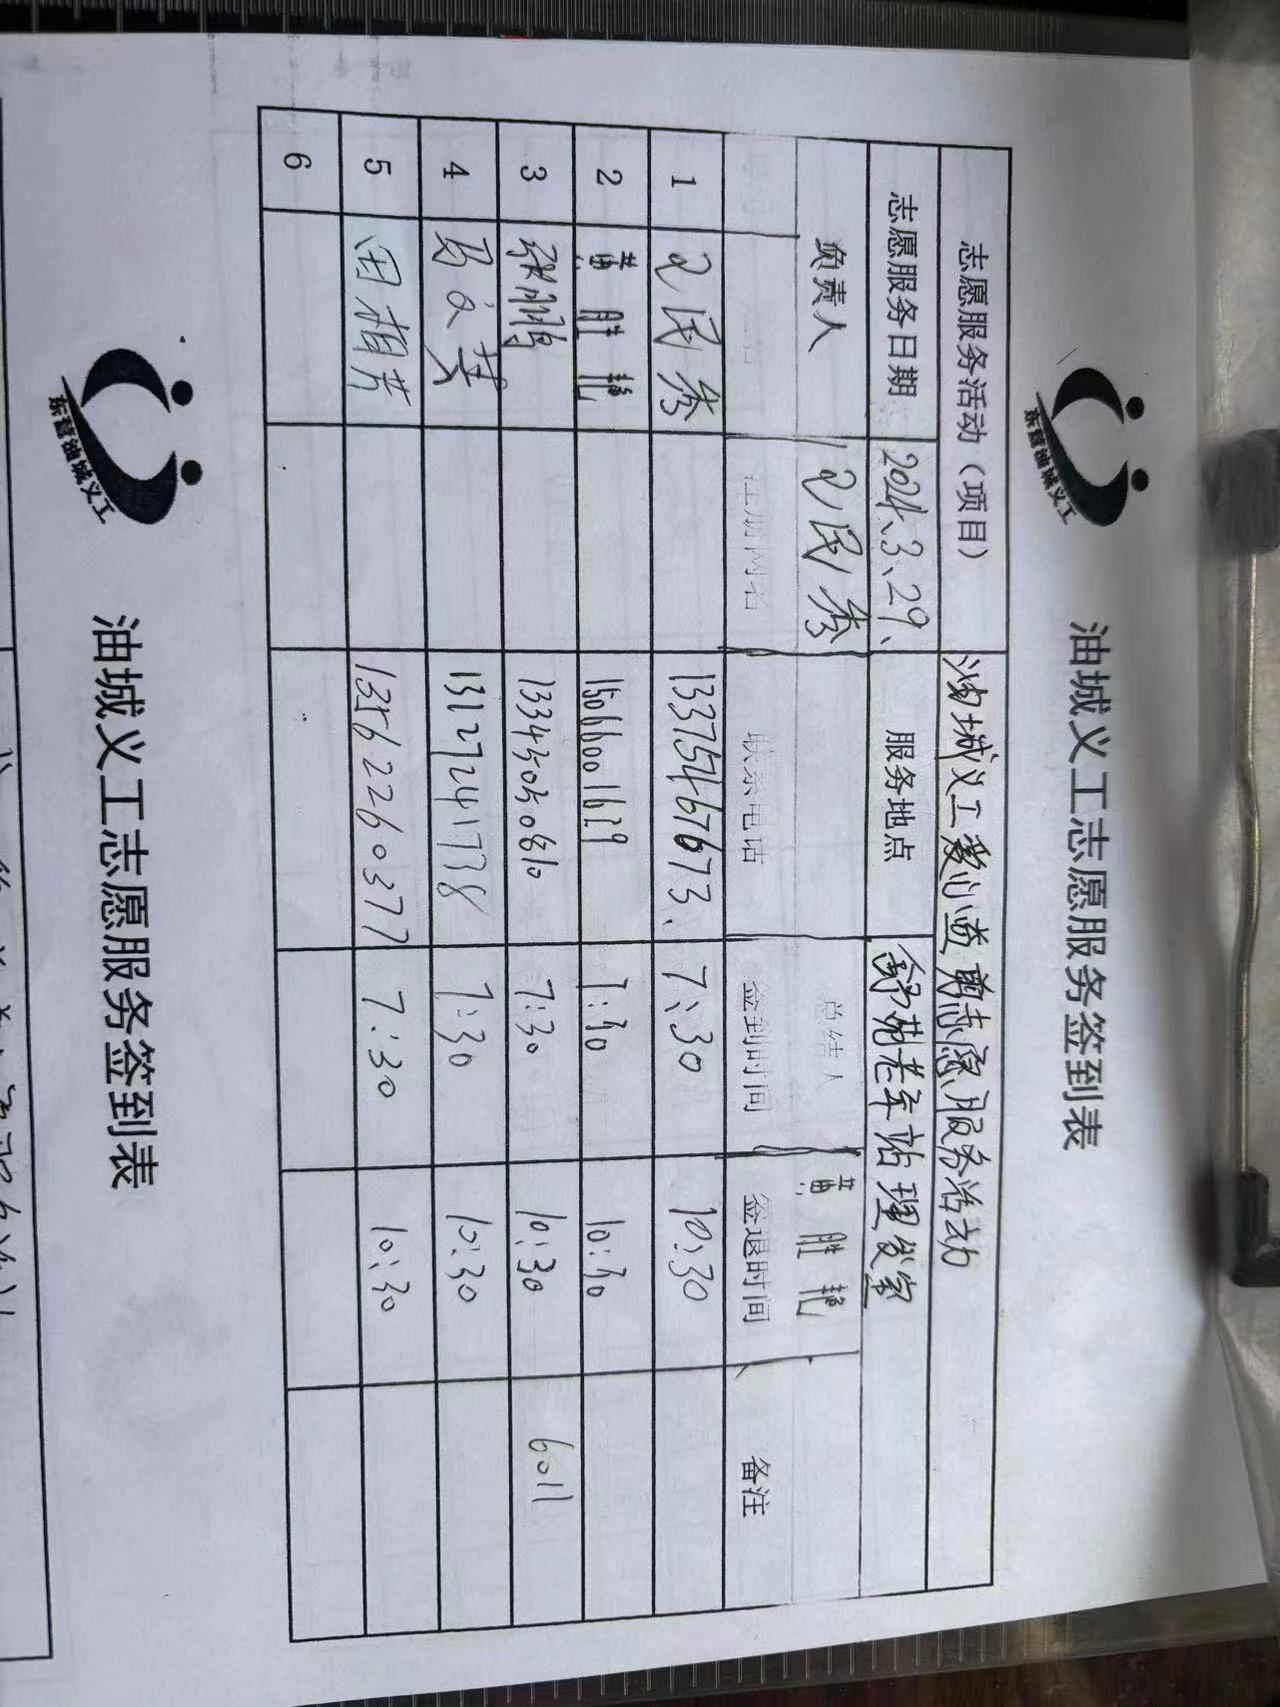 东营油城义工
油城义工志愿服务签到表
志愿服务活动（项目） 油城义工爱心益剪志愿服务活动
志愿服务日期 2024、3、29、 服务地点 锦苑老年站理发室
负责人 民秀 总结人 黄胜艳
注册网名 联系电话 签到时间 签退时间 备注
1 民秀 13375467673、 7:30 10:30
2 黄胜艳 15066001629 7:30 10:30
3 张鹏 7:30 10:30 6011
4 文英 13127241738 7:30 10:30
5 田相芹 13562260377 7:30 10:30
6
东营油城义工
油城义工志愿服务签到表